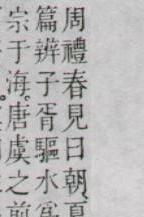 周禮春見日朝、夏
篇辨子胥驅水爲
宗于海。唐虞之前